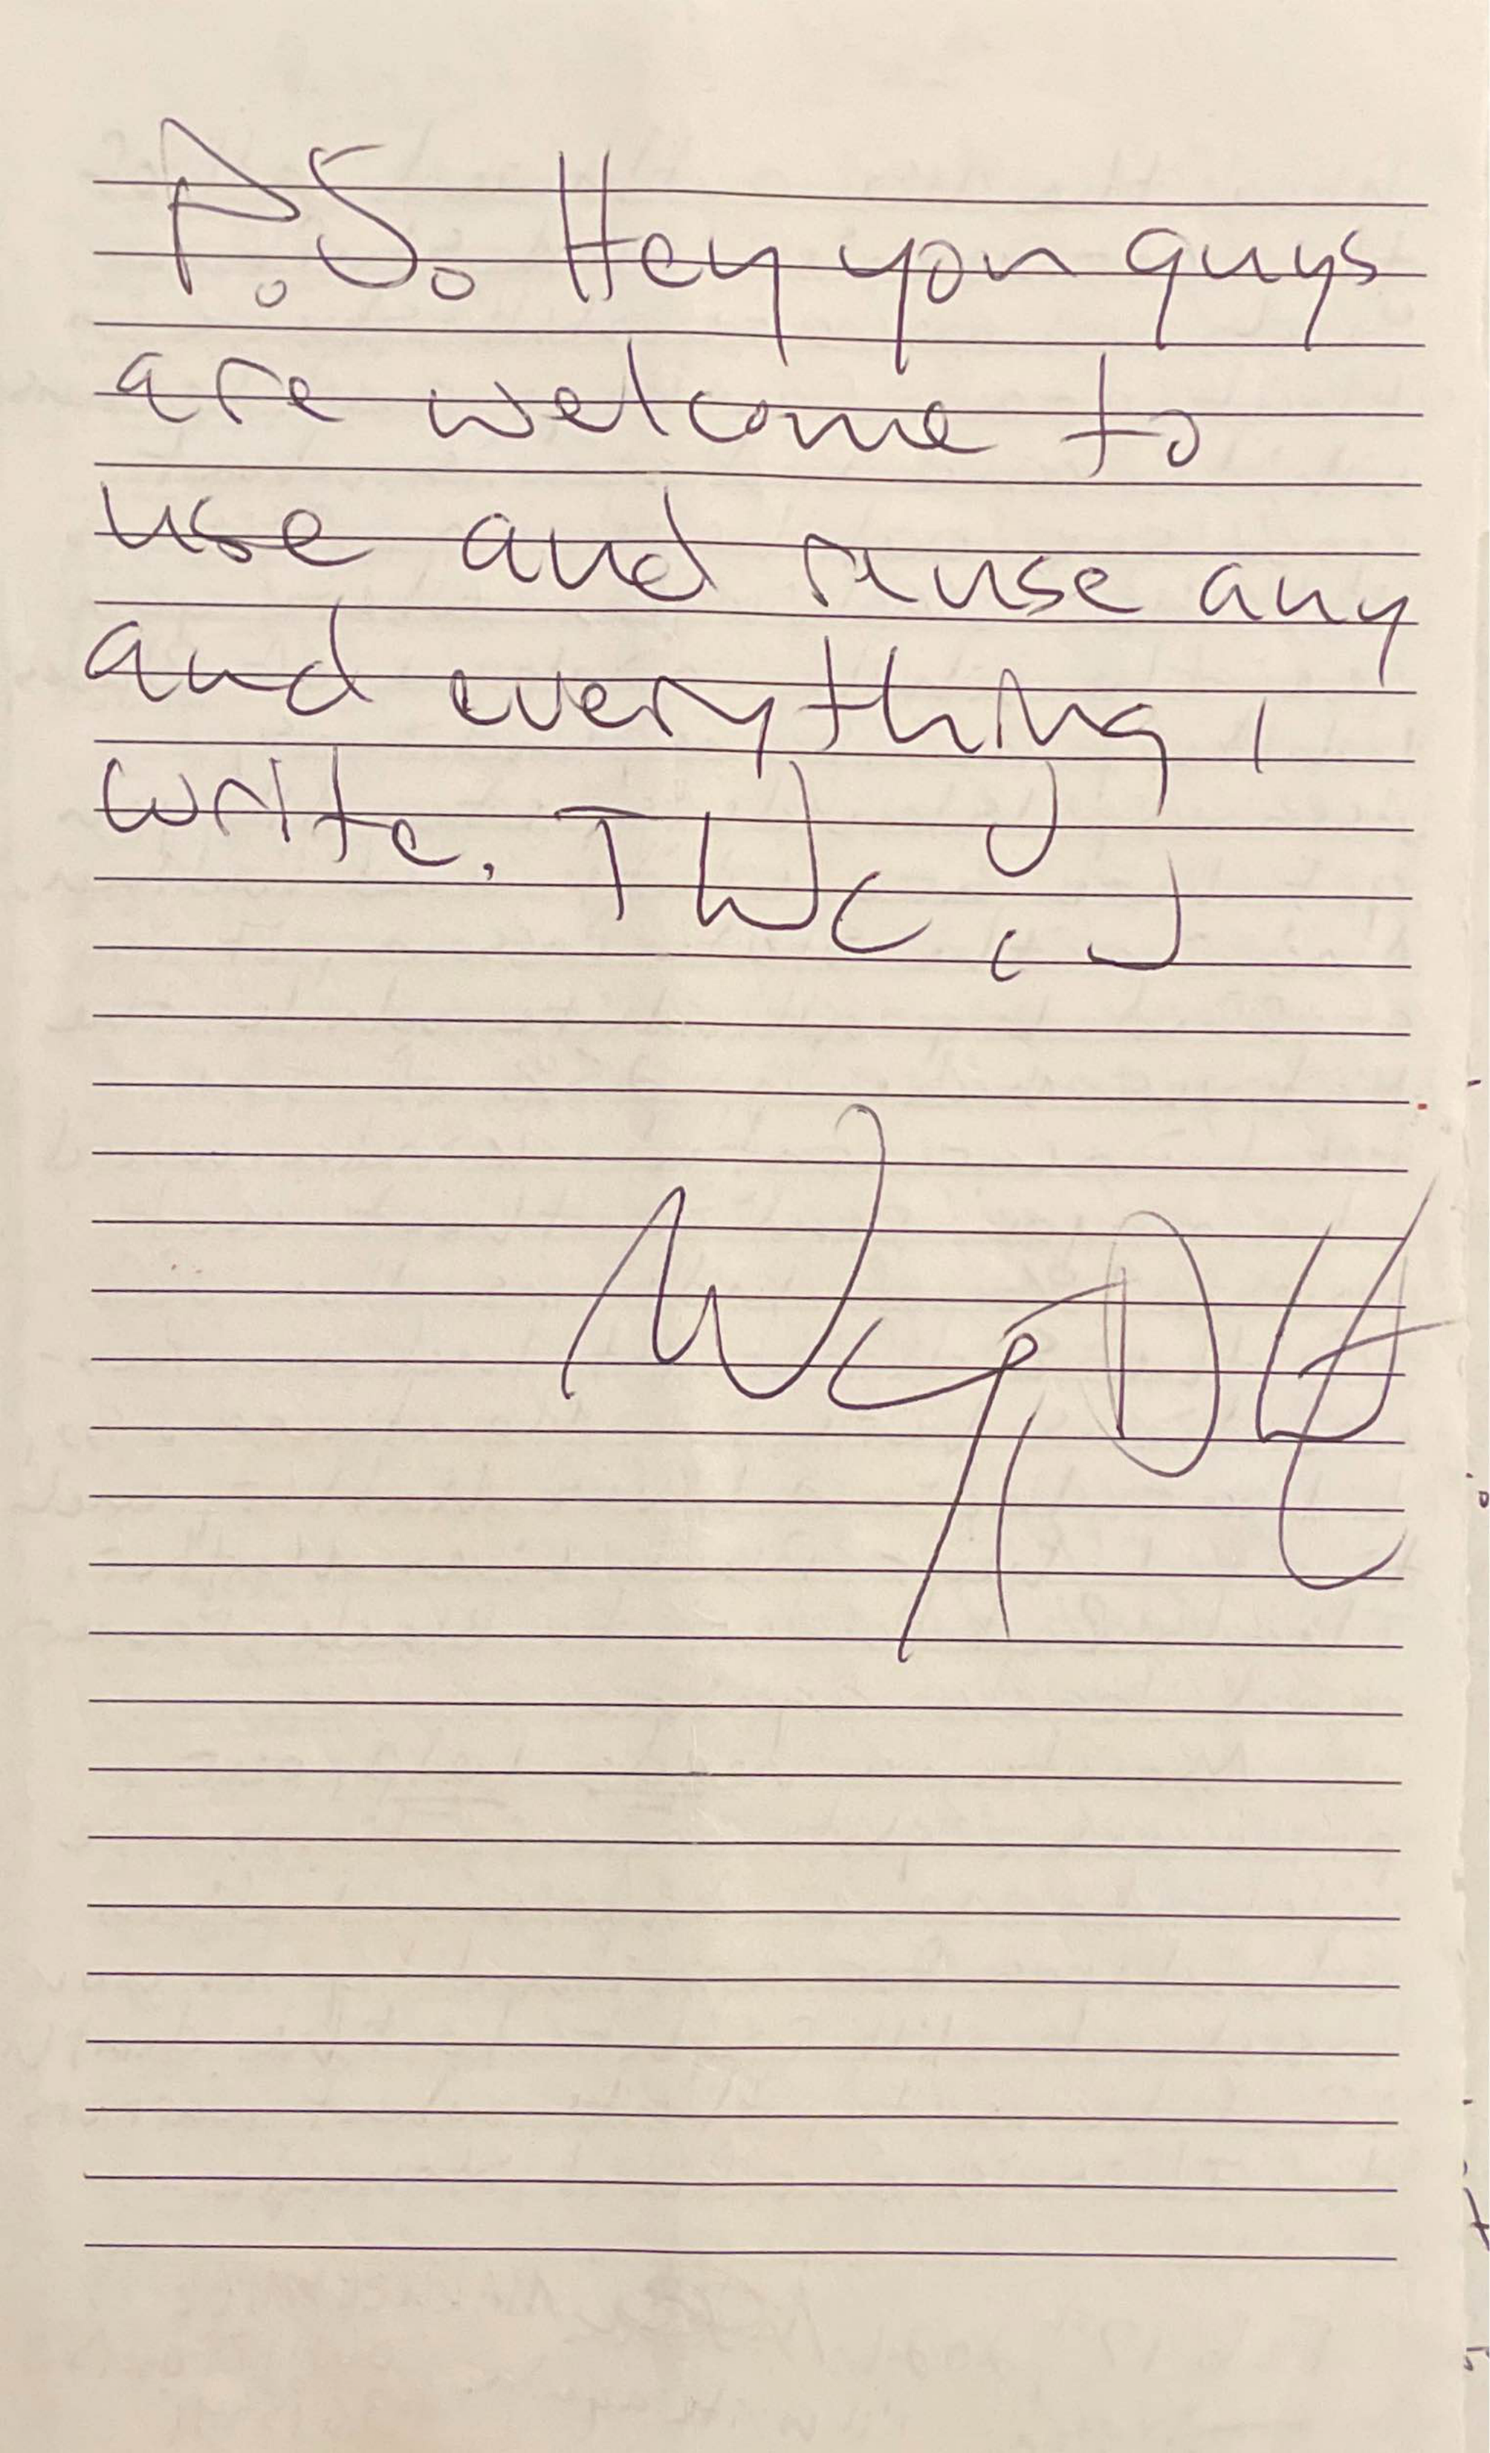 P.S. Hey you guys
are welcome to
use and reuse any
and everything I
write. TWC